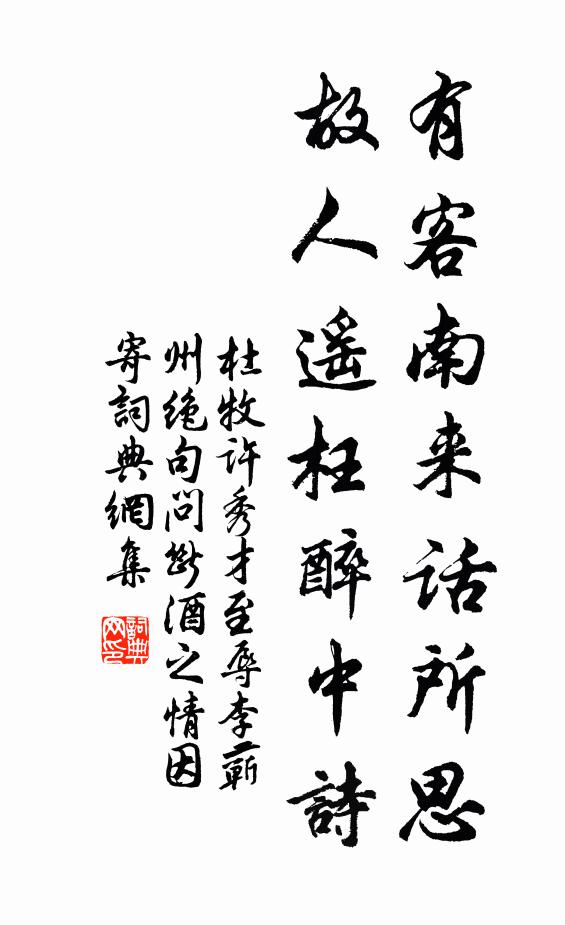 有客南来話所思
故人遥枉醉中詩
杜牧許秀才至辱李蘄
州绝句问断酒之情因
寄詞典網集
詞典网印